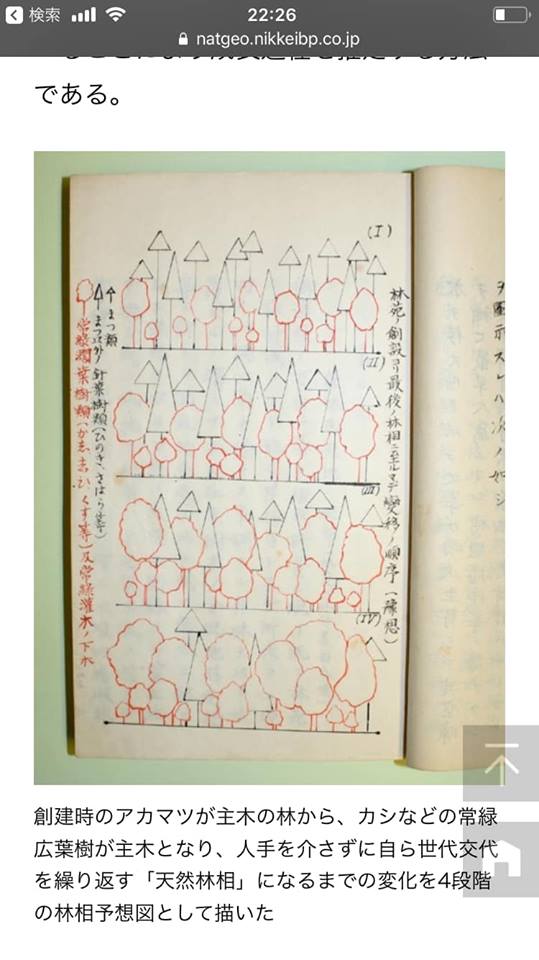 検索
22:26
natgeo.nikkeibp.co.jp
である。
(I)
(II)
(III)
(IV)
林苑ノ創設ヨリ最後ノ林相ニ至ルマデ変移ノ順序(豫想)
まつ類
まつ以外ノ針葉樹類(ひのき、さはら等)
常緑濶葉樹類(かし、しひ、くす等)及常緑灌木ノ下木
ヲ圖示スレハ次ノ如シ
創建時のアカマツが主木の林から、カシなどの常緑
広葉樹が主木となり、人手を介さずに自ら世代交代
を繰り返す「天然林相」になるまでの変化を4段階
の林相予想図として描いた